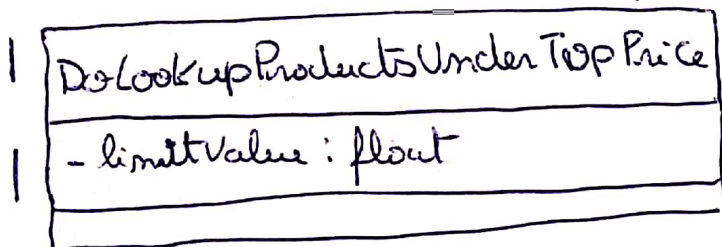 DoLookupProductsUnderTopPrice
- limitValue : float